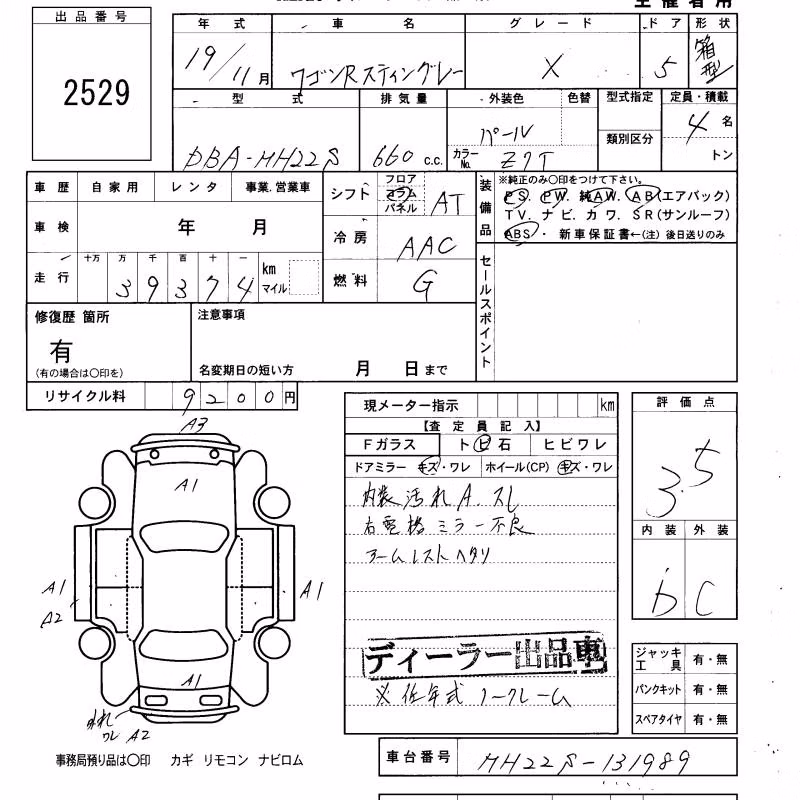 主催者用
出品番号
2529
年式 車名 グレード ドア 形状
19/11月 ワゴンRスティングレー X 5 箱型
型式 排気量 外装色 色替 型式指定 定員・積載
DBA-MH22S 660 c.c. パール 類別区分 4名
カラーNo. Z7T トン
車歴 自家用 レンタ 事業.営業車
車検 年 月
走行 十万 万 千 百 十 一
39374 km マイル
シフト フロア コラム パネル AT
冷房 AAC
燃料 G
装備品
※純正のみ○印をつけて下さい。
PS. PW. 純AW. AB(エアバック)
TV. ナビ. カワ. SR(サンルーフ)
ABS・ 新車保証書←(注) 後日送りのみ
セールスポイント
修復歴 箇所
有
(有の場合は○印を)
注意事項
名変期日の短い方 月 日まで
リサイクル料 9200円
現メーター指示 km
【査定員記入】
Fガラス ト ビ 石 ヒビワレ
ドアミラー キズ・ワレ ホイール(CP) キズ・ワレ
内装汚れA.スレ
右電格ミラー不良
アームレストヘタリ
ディーラー出品車
※低年式 ノークレーム
評価点
3.5
内装 外装
b C
ジャッキ工具 有・無
パンクキット 有・無
スペアタイヤ 有・無
A3
A1
A1
A2
A1
A1
ワレ A2
事務局預り品は○印 カギ リモコン ナビロム
車台番号 MH22S-131989